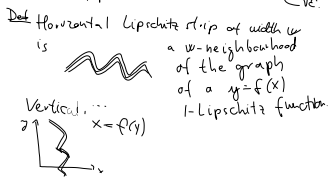 Def Horizontal Lipschitz strip of width w
is a w-neighbourhood
of the graph
of a y=f(x)
1-Lipschitz function.
Vertical ...
y x=f(y)
x